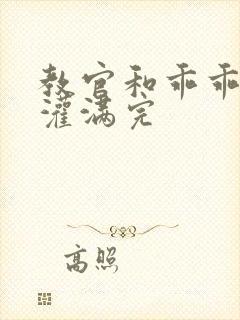 教官和乖乖
灌满完
高照